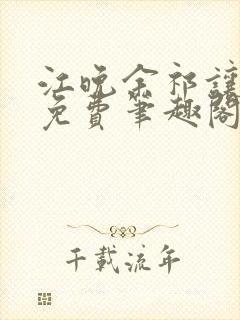 江晚余祁让
免费笔趣阁
千载流年